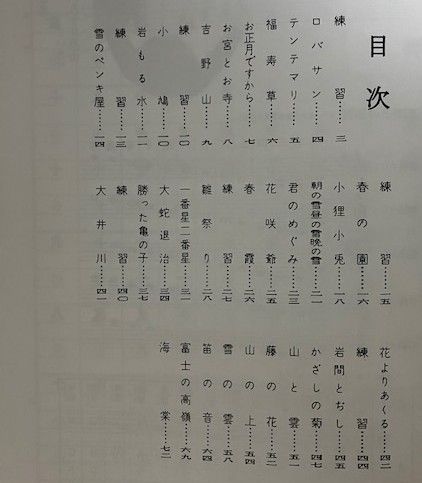 目次
練習……三
ロバサン……四
テンテマリ……五
福寿草……六
お正月ですから……七
お宮とお寺……八
吉野山……九
練習……一〇
小鳩……一〇
岩もる水……一一
練習……一三
雪のペンキ屋……一四
練習……一五
春の園……一六
小狸小兎……一八
朝の雪昼の雪晩の雪……二一
君のめぐみ……二三
花咲爺……二五
春霞……二六
練習……二七
雛祭り……二八
一番星二番星……三一
大蛇退治……三四
勝った亀の子……三七
練習……四〇
大井川……四一
花よりあくる……四三
練習……四四
岩間とぢし……四五
かざしの菊……四七
山と雲……五一
藤の花……五二
山の上……五四
雪の雲……五八
笛の音……六四
富士の高嶺……六九
海棠……七二